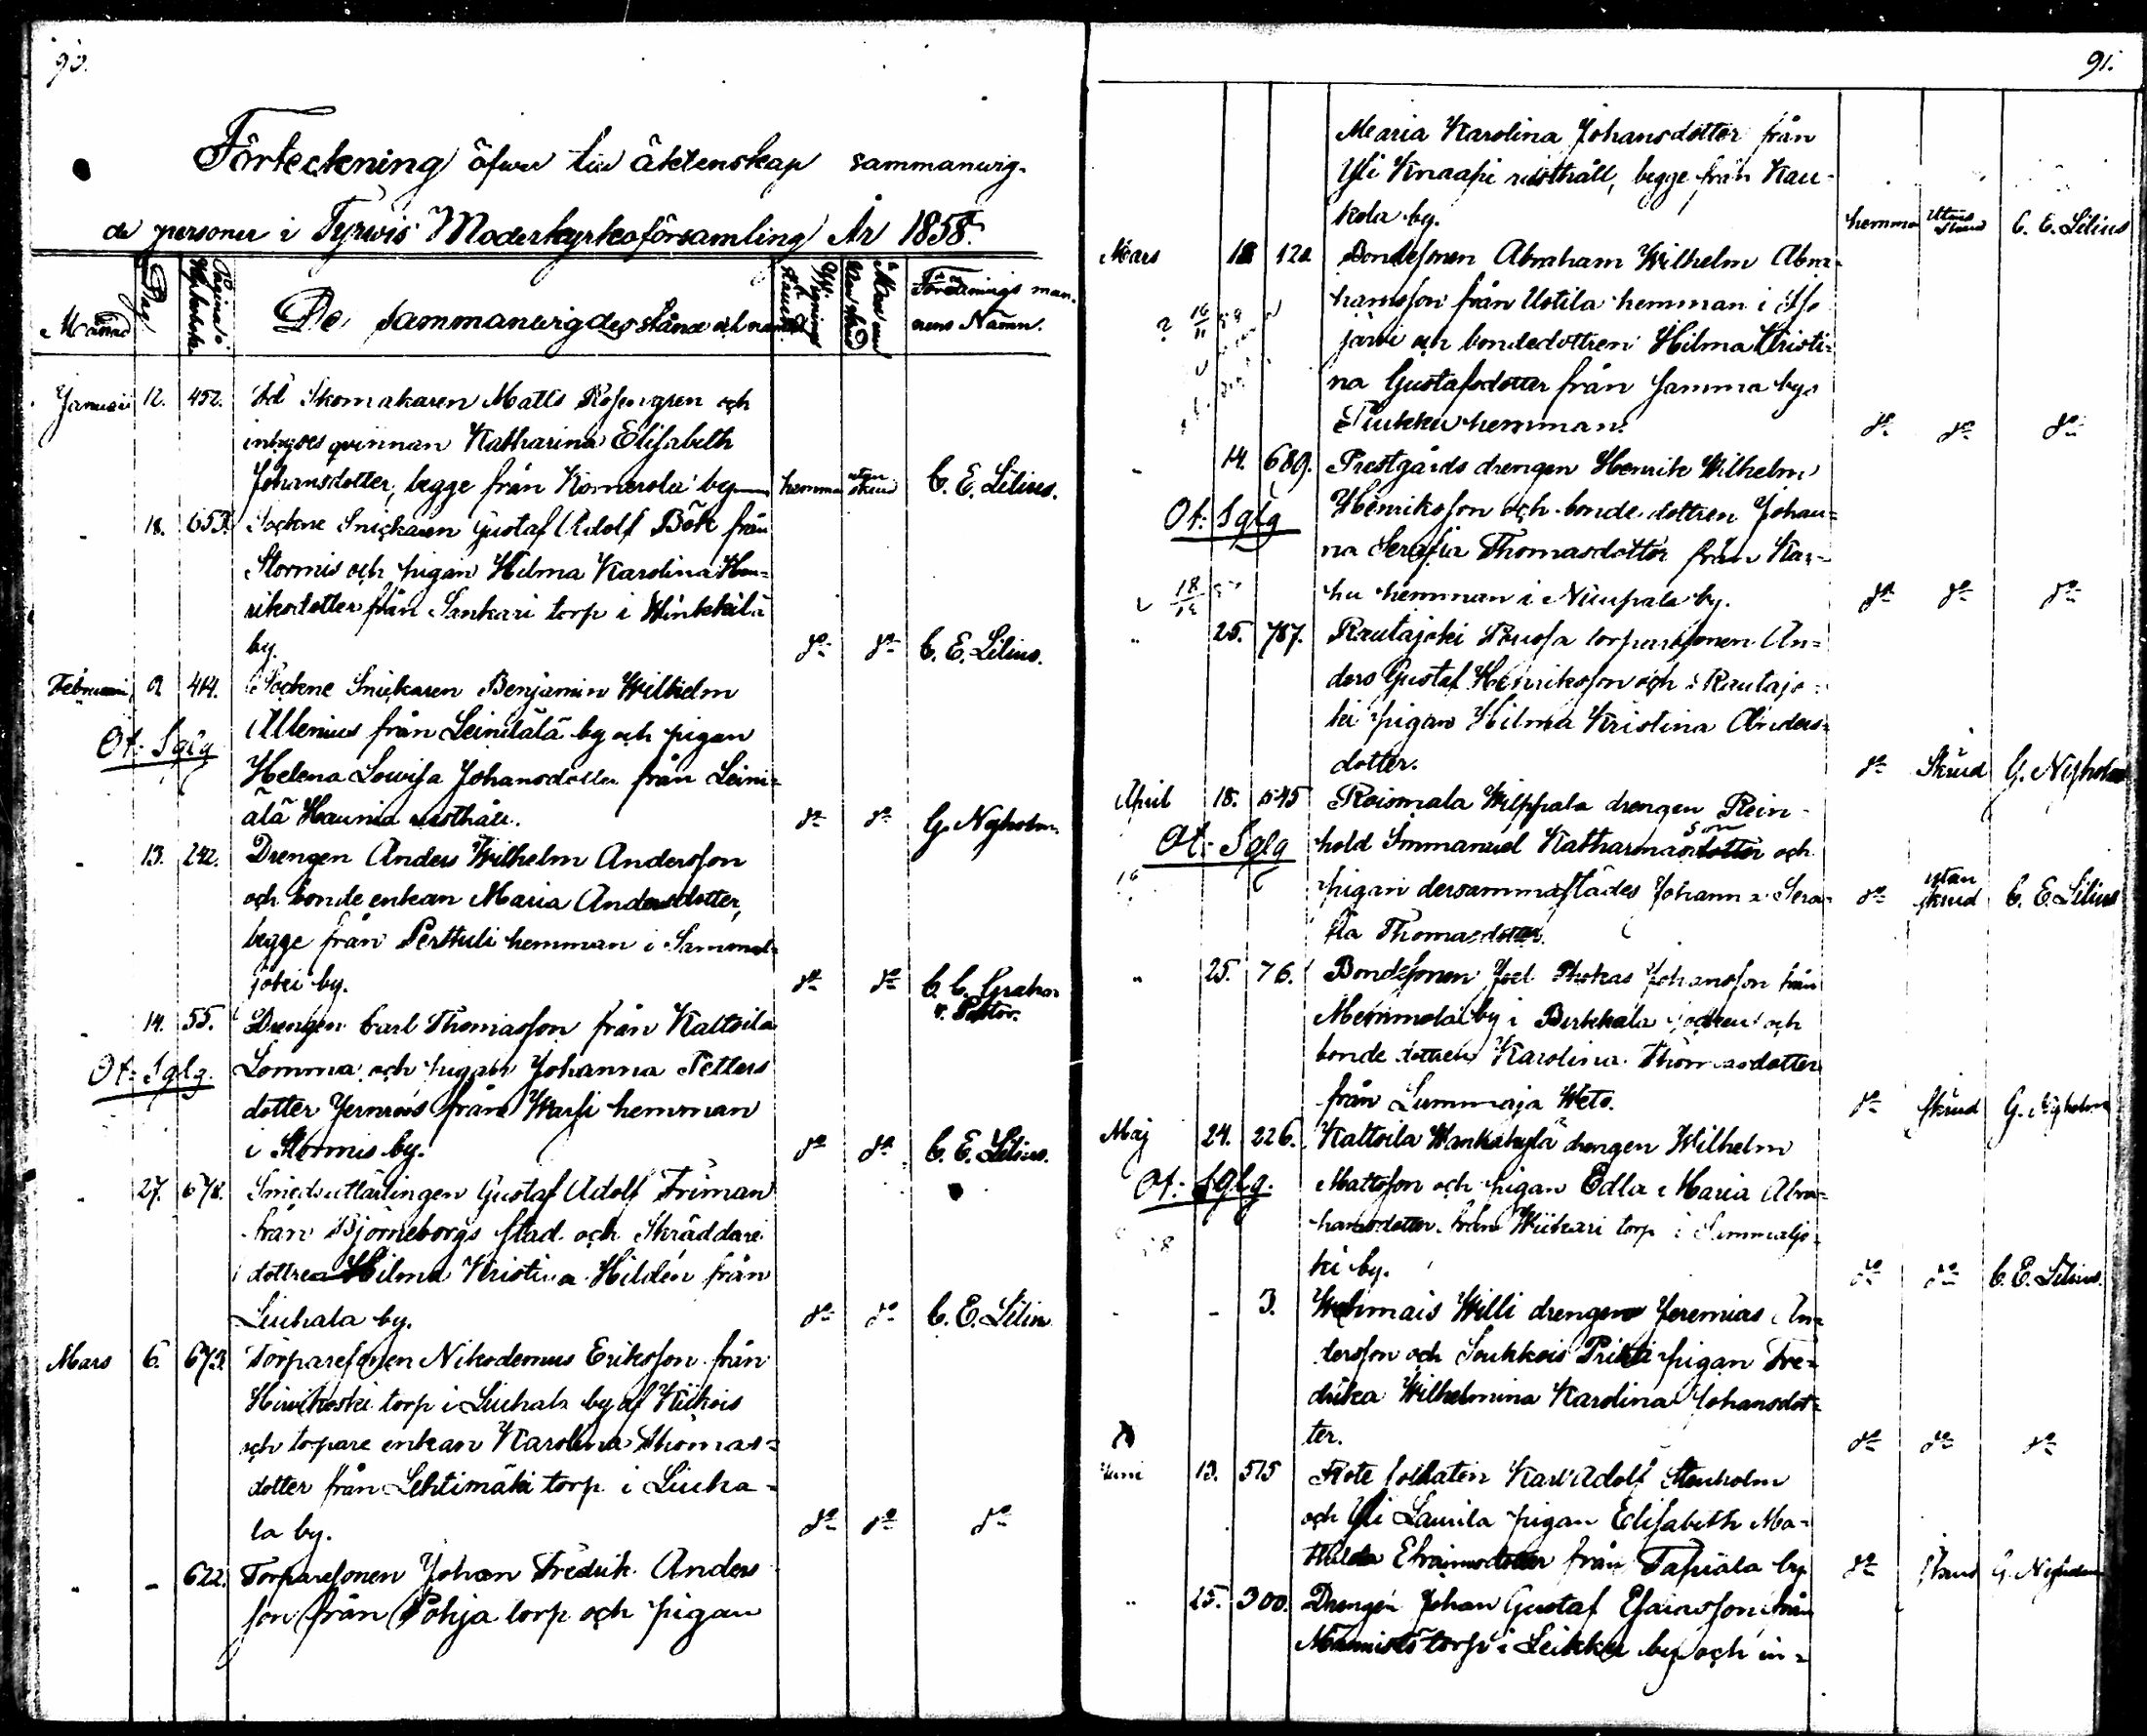 90.
Förteckning öfver till äktenskap sammanvig-
de personer i Tyrwis Moderkyrkoförsamling År 1858.
Månad Dag Pagina i De sammanvigdas stånd och namn Förrättnings man-
nens Namn.
Januari 12. 452. Skomakaren Matts Rosengren och
inhyses qvinnan Katharina Elisabeth
Johansdotter, begge från Komerola by hemma utan skrud C. E. Lilius.
" 18. 653. Sockne Snickaren Gustaf Adolf Böök från
Stormis och pigan Hilma Karolina Hen-
riksdotter från Sankari torp i Winkkilä
by. d:o d:o C. E. Lilius.
Februari 2 414. Sockne Snickaren Benjamin Wilhelm
Allenius från Leiniälä by och pigan
Of: Sglg
Helena Lowisa Johansdotter från Leini-
älä Haunia rusthåll. d:o d:o G. Nyholm
" 13. 242. Drengen Anders Wilhelm Andersson
och bonde enkan Maria Andersdotter,
begge från Perttuli hemman i Sammal-
joki by. d:o d:o C. C. Grahn
v. Pastor.
" 14. 55. Drengen Carl Thomasson från Kaltsila
Of: Sglg. Lomma och pigan Johanna Petters
dotter Jernroos från Warfi hemman
i Stormis by. d:o d:o C. E. Lilius.
" 27. 678. Smedsuttärlingen Gustaf Adolf Friman
från Björneborgs stad och Skräddare
dottren Hilma Kristina Hildén från
Liuhala by. d:o d:o C. E. Lilius
Mars 6. 673. Torparesonen Nikodemus Eriksson från
Hiuikoski torp i Liuhala by af Kiikois
och torpare enkan Karolina Thomas-
dotter från Lehtimäki torp i Liuha-
la by. d:o d:o d:o
" - 622. Torparesonen Johan Fredrik Anders
son från Pohja torp och pigan
91.
Maria Karolina Johansdotter från
Yli Knaapi rusthåll, begge från Kau-
kola by. hemma utan skrud C. E. Lilius
Mars 12 120 Bondesonen Abraham Wilhelm Abra-
hamsson från Uotila hemman i
järvi och bondedottren Hilma Kristi-
na Gustafsdotter från Jamma by
Tiukku hemman. d:o d:o d:o
" 14. 689. Prestgårds drengen Henrik Wilhelm
Of: Sglg Henriksson och bonde dottren Johan-
na Serafia Thomasdotter från Kar-
hu hemman i Niupala by. d:o d:o d:o
" 25. 787. Rautajoki torparesonen An-
ders Gustaf Henriksson och Rautajo-
ki pigan Hilma Kristina Anders-
dotter. d:o Skrud G. Nyholm
April 18. 545 Roismala Wilppala drengen Rein-
Of: Sglg hold Immanuel Katharinasson och
pigan dersammastädes Johanna Sera- d:o utan skrud C. E. Lilius
fia Thomasdotter.
" 25. 76. Bondesonen Joel Johansson från
Mernmola by i Birkkala socken och
bonde dottren Karolina Thomasdotter
från Lummaja Wets. d:o skrud G. Nyholm
Maj 24. 226. Kaltsila Wankakylä drengen Wilhelm
Of: Sglg. Mattsson och pigan Edla Maria Abra-
hamsdotter från Wiikari torp i Sammaljo-
ki by. d:o d:o C. E. Lilius.
- - 3. Wehmais Willi drengen Jeremias An-
dersson och Soukkois Prikti pigan Fre-
drika Wilhelmina Karolina Johansdot-
ter. d:o d:o d:o
Juni 13. 515 Rote soldaten Karl Adolf Stenholm
och Yli Laurila pigan Elisabeth Ma-
thilda Efraimsdotter från Tapiala by d:o skrud G. Nyholm
" 25. 300. Drengen Johan Gustaf Esaiasson från
Männistö torp i Leikku by och in-